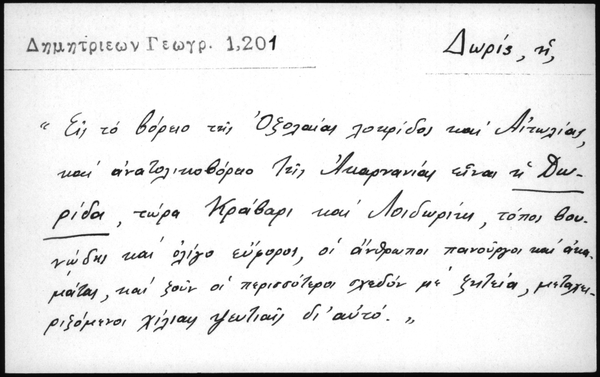 Δημητριεων Γεωγρ. 1,201
Δωρίς, ἡ,
" Εἰς τό βόρειο τῆς Ὀζολαίας Λοκρίδος καί Αἰτωλίας,
καί ἀνατολικοβόρειο τῆς Ἀκαρνανίας εἶναι ἡ Δω-
ρίδα, τώρα Κράβαρι καί Λοιδωρίκι, τόπος βου-
νώδης καί ὀλίγο εὔφορος, οἱ ἄνθρωποι πανοῦργοι καί ἀκα-
μάται, καί ζοῦν οἱ περισσότεροι σχεδόν μέ ζητεία, μεταχει-
ριζόμενοι χίλιαις ψευτιαῖς δι' αὐτό. "